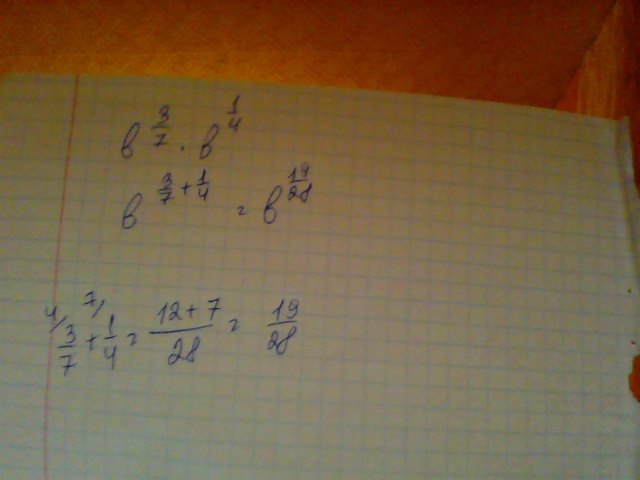 в^(3/7) · в^(1/4)
в^(3/7 + 1/4) = в^(19/28)
4/ 3/7 + 7/ 1/4 = (12+7)/28 = 19/28